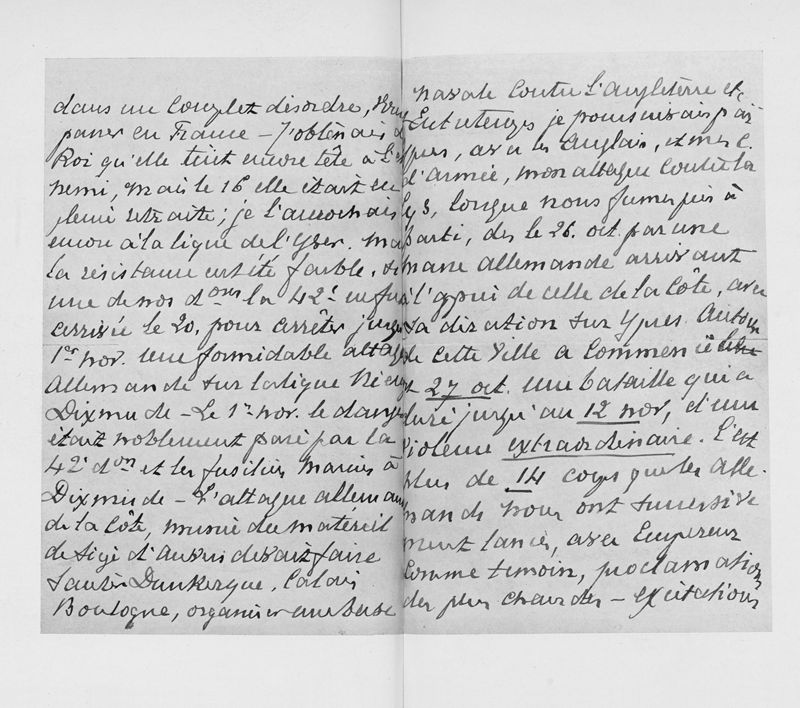 dans un complet désordre,
passer en France – J'obtenais d
Roi qu'elle tint encore tête à l'en
nemi, mais le 16 elle était en
pleine retraite ; je l'accrochais
encore à la ligne de l'Yser. Ma
la résistance eut été faible, si
une de nos dons la 42e ne fu
arrivée le 20, pour arrêter jusqu
1er nov. une formidable attaq
allemande sur la ligne Nieup
Dixmude – Le 1er nov. le dang
était noblement paré par la
42e don et les fusiliers marins à
Dixmude – L'attaque alleman
de la Côte, munie du matériel
de siège d'Anvers devait faire
sauter Dunkerque, Calais
Boulogne, organiser une base
navale contre l'Angleterre etc
En même temps je poursuivais par
Ypres, avec les Anglais, et mes C.
d'armée, mon attaque contre la
Lys, lorsque nous fumes pris à
parti, dès le 26. oct. par une
masse allemande arrivant
à l'appui de celle de la Côte, avec
sa direction sur Ypres. Autour
de cette ville a commencé
27 oct. une bataille qui a
duré jusqu'au 12 nov, d'une
violence extraordinaire. C'est
plus de 14 corps que les Alle-
mands nous ont successive
ment lancés, avec Empereur
comme témoin, proclamations
des plus chaudes – excitations